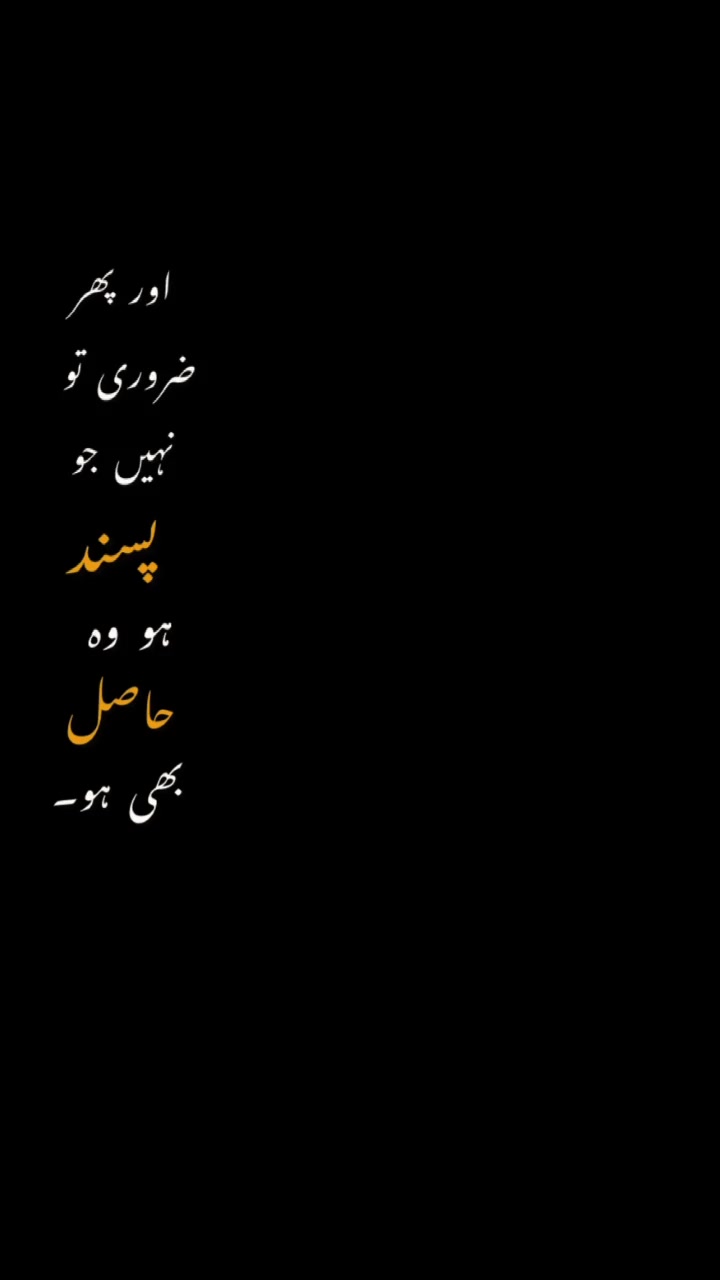 اور پھر
ضروری تو
نہیں جو
پسند
ہو وہ
حاصل
بھی ہو۔